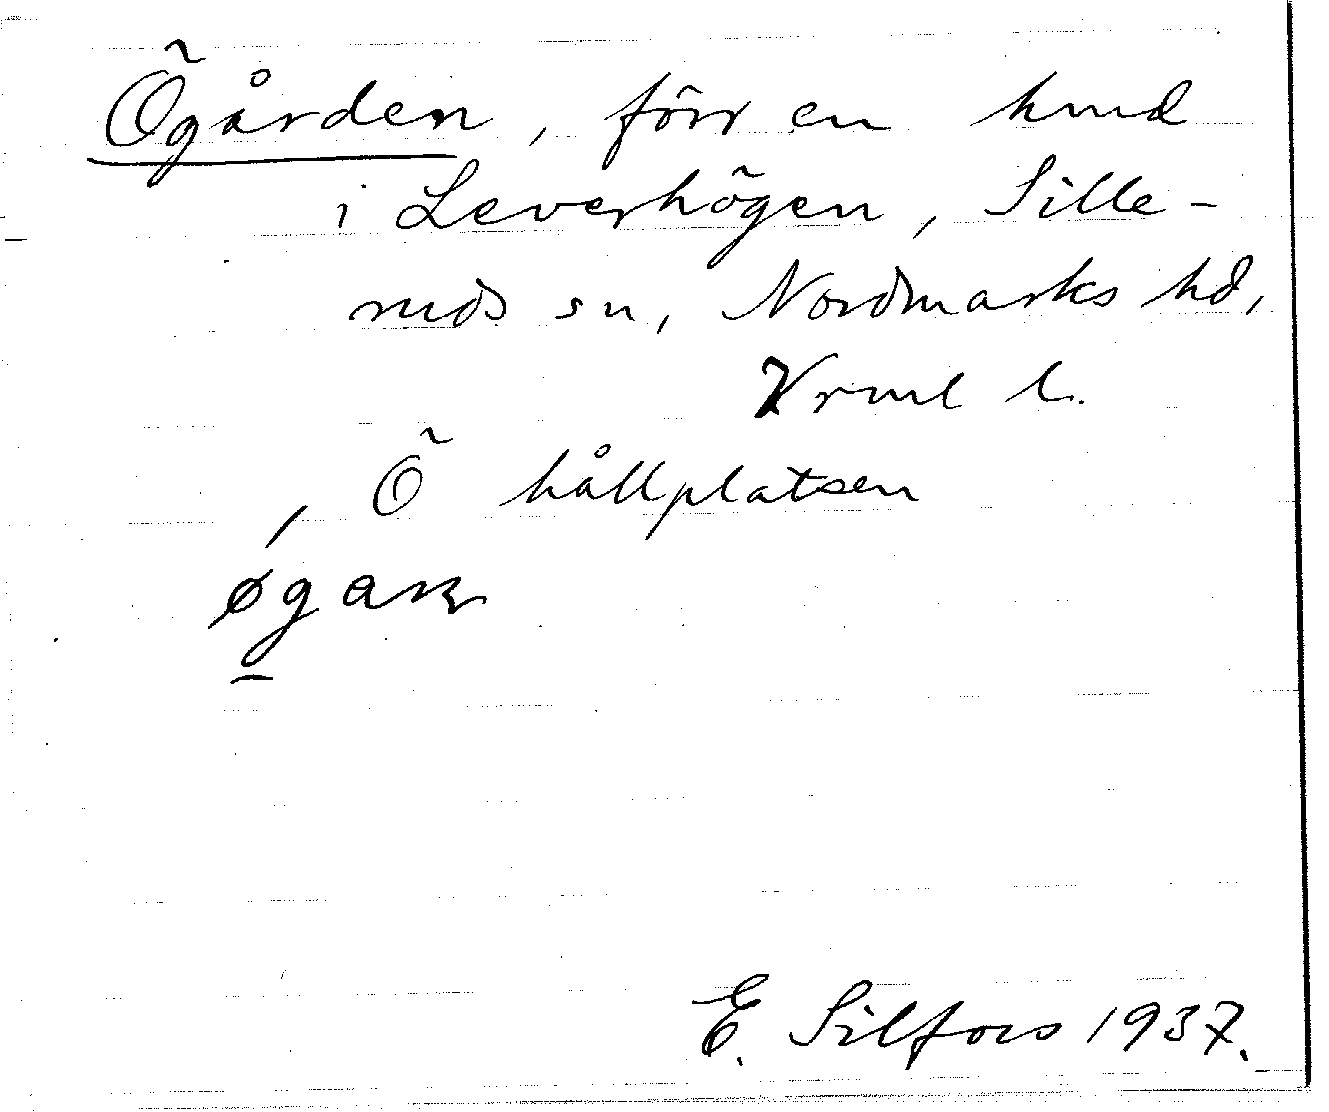 Ögården, förr en hmd
i Leverhögen, Sille-
ruds sn, Nordmarks hd,
Vrml l.
, Ö hållplatsen
øgaɳ
E. Silfors 1937.